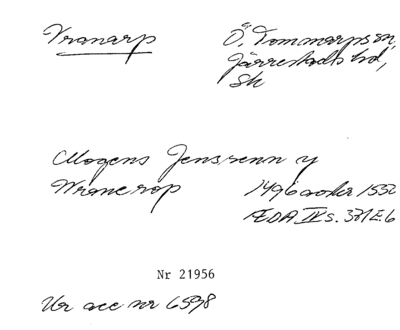 Vranarp
Ö. Tommarps sn,
Järrestads hd,
Sk
Mogens Jenssenn y
Wranerop 1496 avskr 1550
ÆDA IV s. 371 E. 6
Nr 21956
Ur acc nr 6598